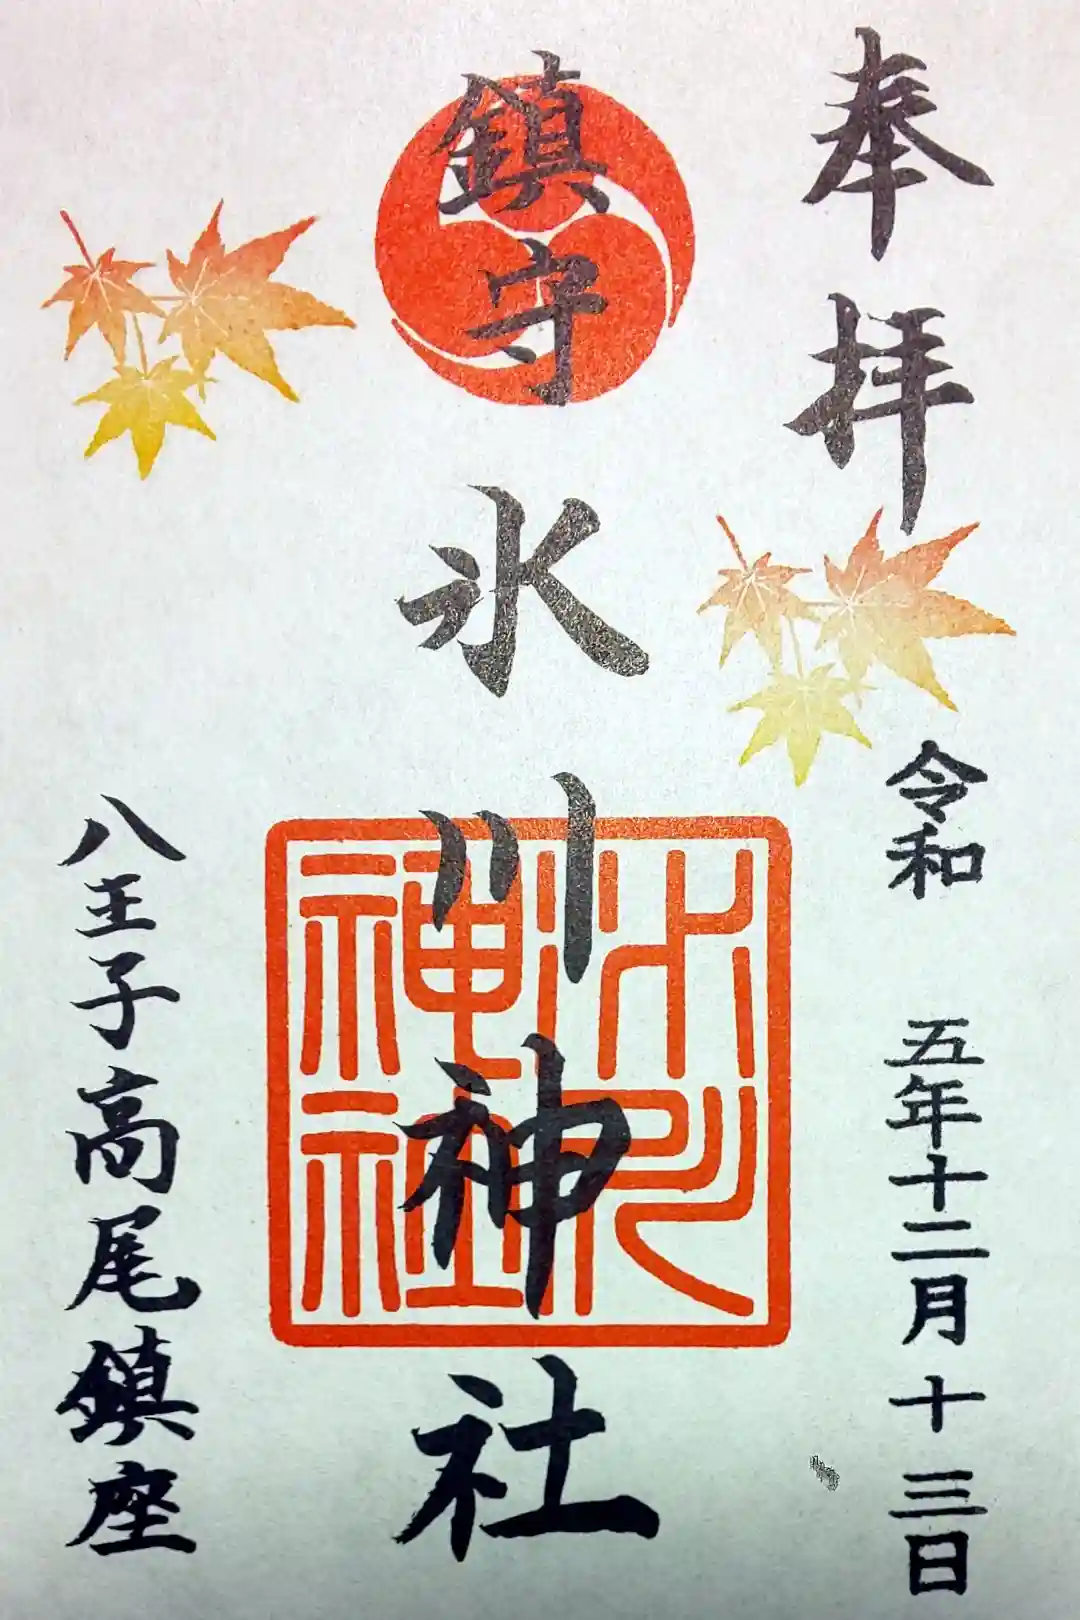 奉拝
令和 五年十二月十三日
鎮守氷川神社
氷川神社
八王子高尾鎮座